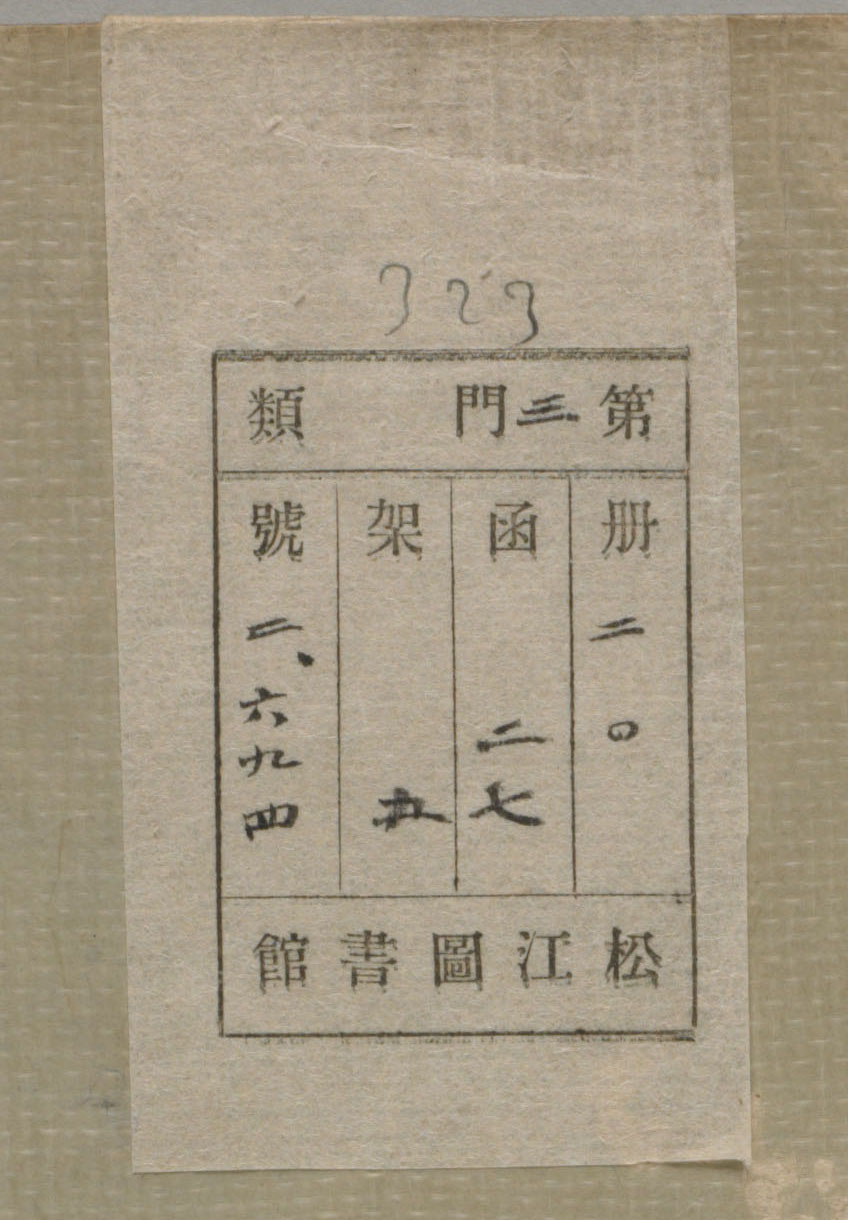 323
第三門類
册二〇
函二七
架五
號二、六九四
松江圖書館